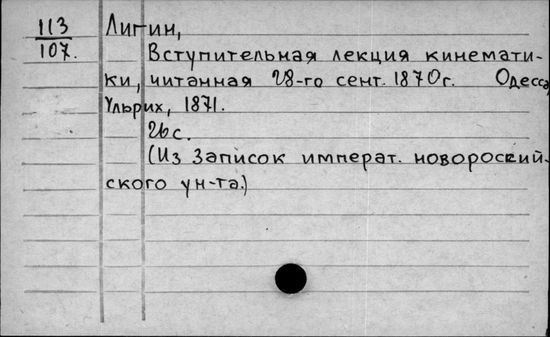 113 Лигин,
107. Вступительная лекция кинемати-
ки, читанная 28-го сент. 1870г. Одесса,
Ульрих, 1871.
26 с.
(Из Записок императ. новоросий-
ского ун-та.)